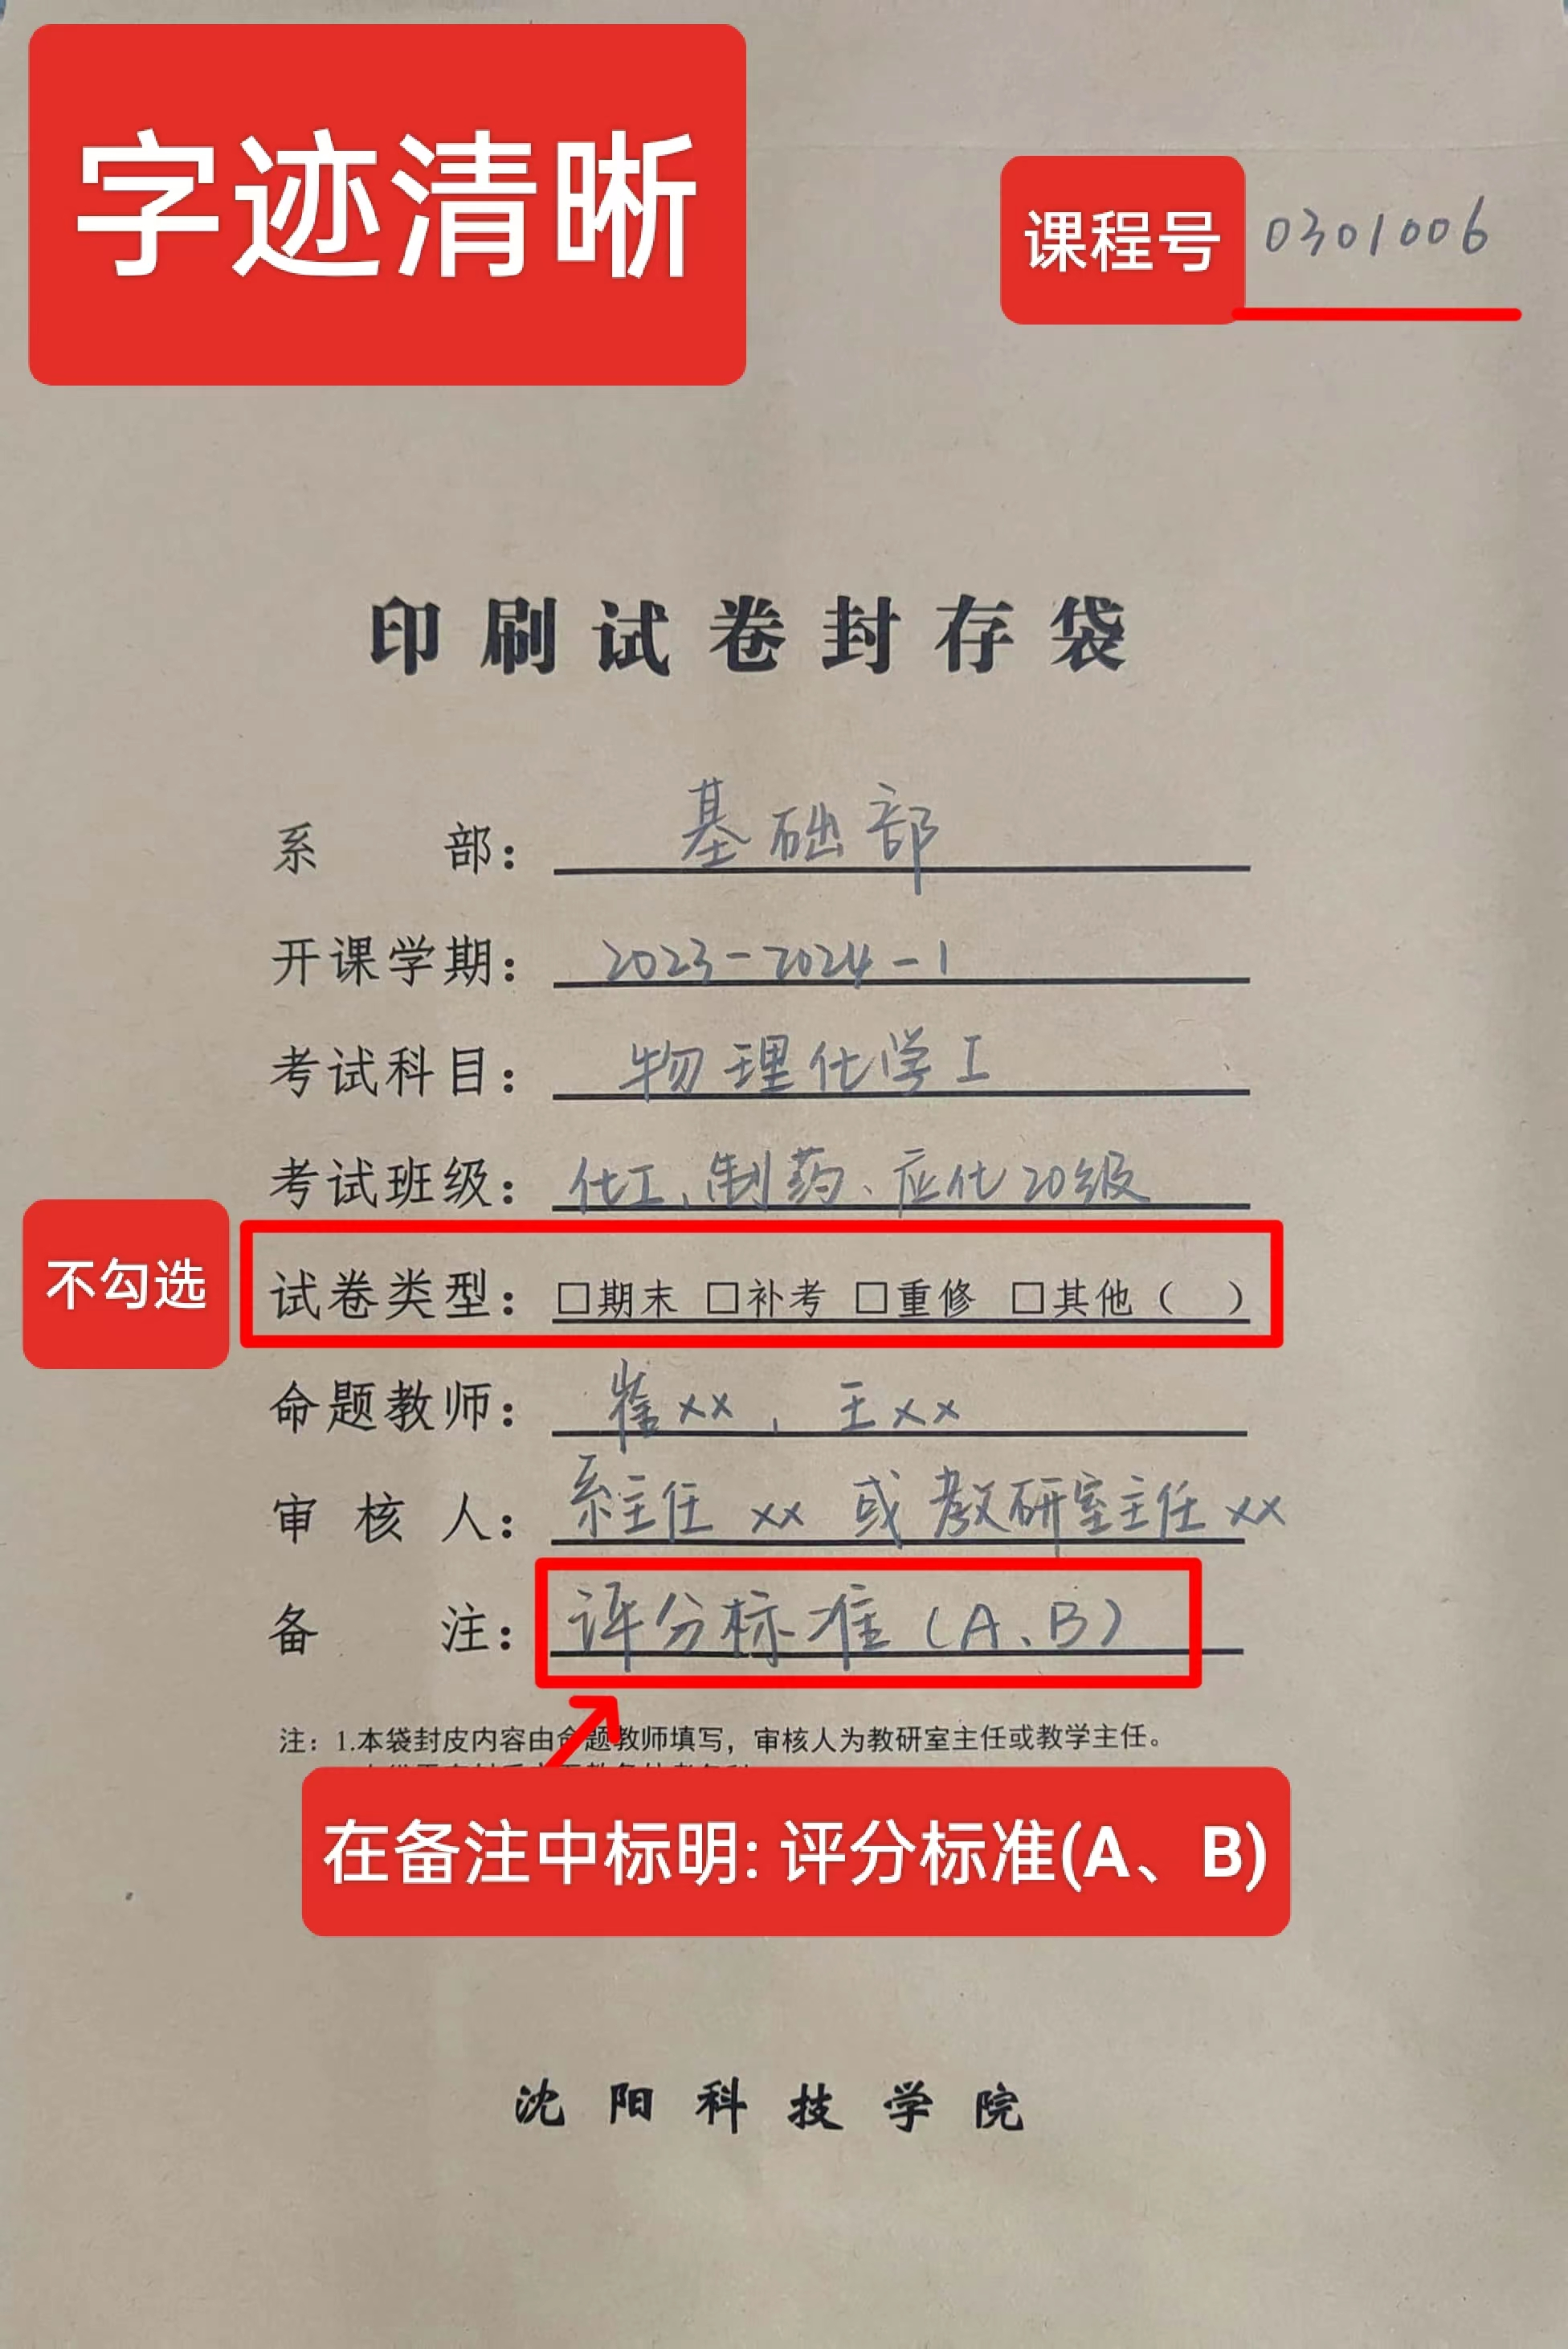 字迹清晰
课程号 0301006
印刷试卷封存袋
系部：基础部
开课学期：2023-2024-1
考试科目：物理化学I
考试班级：化工、制药、应化20级
不勾选
试卷类型：□期末 □补考 □重修 □其他（ ）
命题教师：崔xx，王xx
审核人：系主任 xx 或 教研室主任xx
备注：评分标准（A、B）
注：1.本袋封皮内容由命题教师填写，审核人为教研室主任或教学主任。
在备注中标明: 评分标准(A、B)
沈阳科技学院